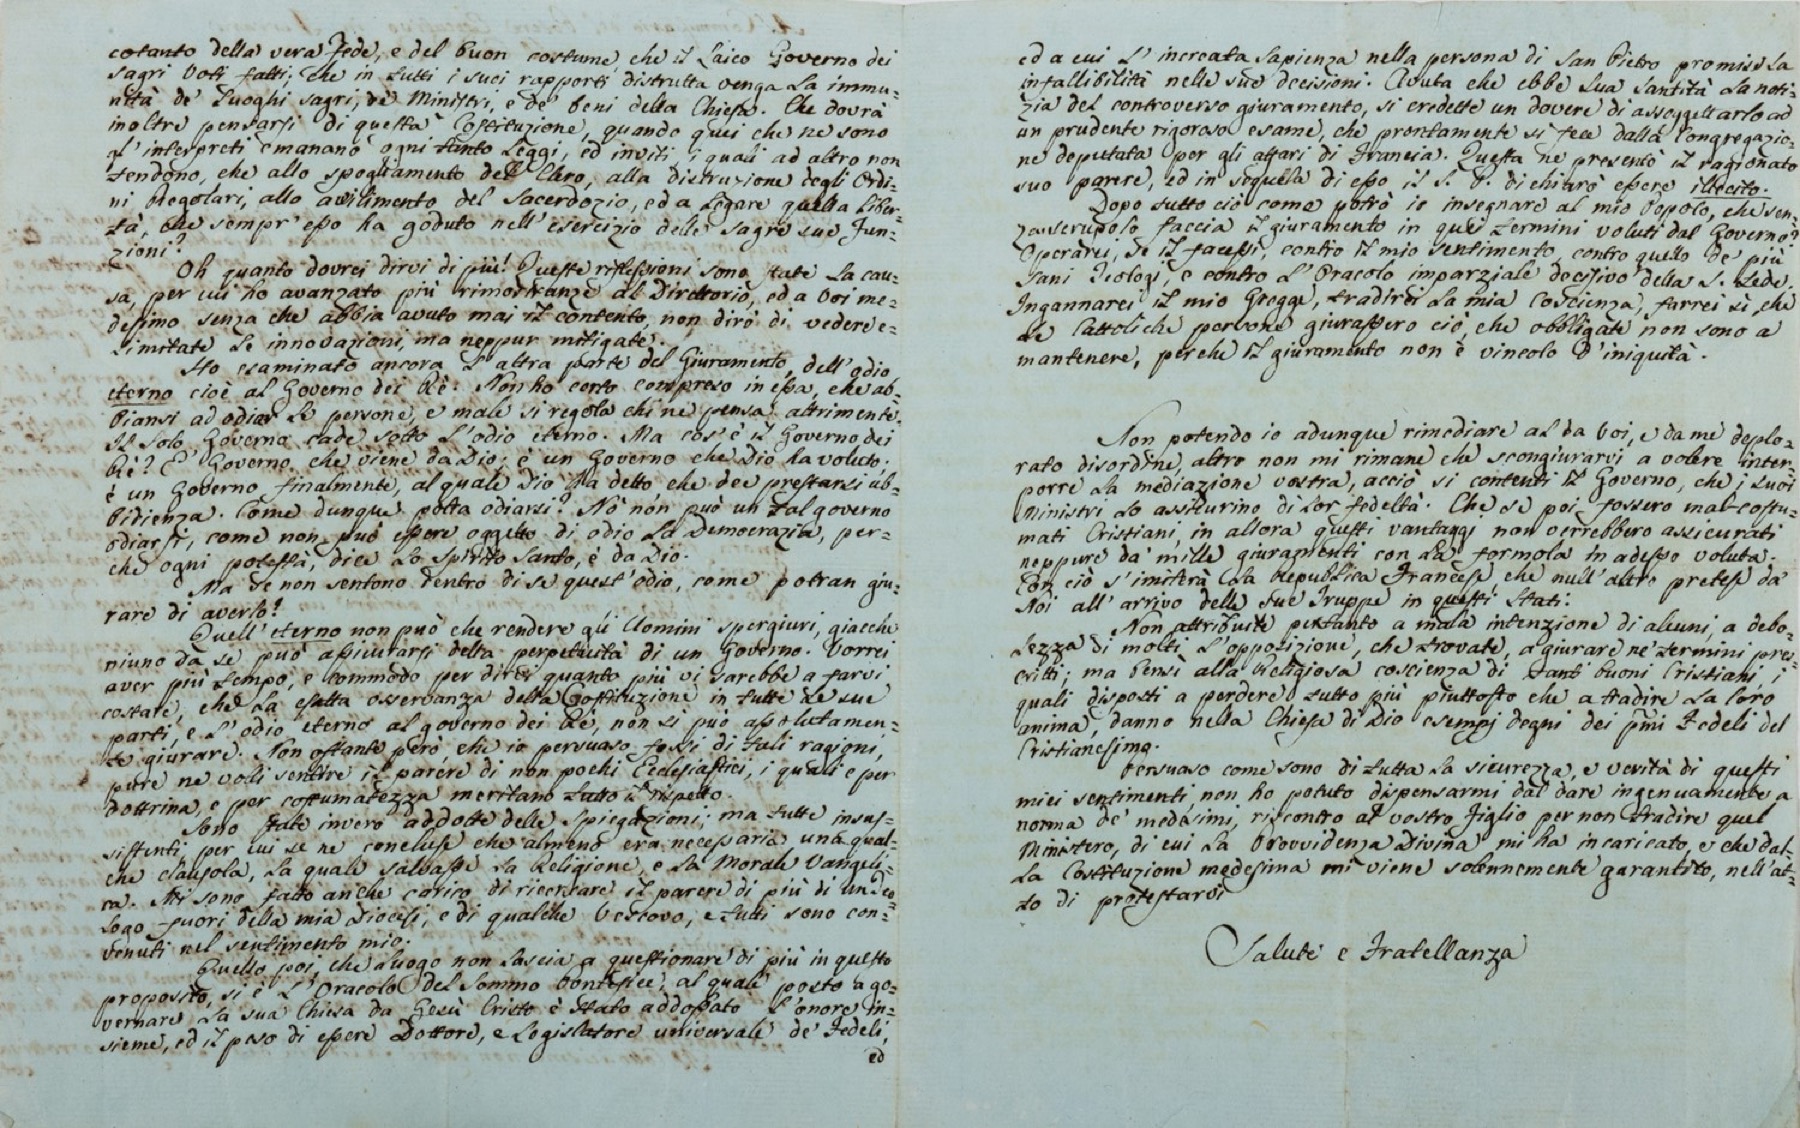 cotanto della vera Fede, e del buon costume, che il Laico Governo dei
sagri Voti fatti; che in tutti i suoi rapporti distrutta venga la immu=
nità de' Luoghi sagri, de' Ministri, e de' beni della Chiesa. Che dovrà
inoltre pensarsi di questa Costituzione, quando quei che ne sono
gl'interpreti emanano ogni tanto Leggi, ed inviti, i quali ad altro non
tendono, che allo spogliamento del Clero, alla distruzione degli Ordi=
ni Regolari, allo avilimento del Sacerdozio, ed a Legare quella Liber=
tà, che sempr'esso ha goduto nell'esercizio delle sagre sue Fun=
zioni?
Oh quanto dovrei dirvi di più! Queste riflessioni sono state la cau=
sa, per cui ho avanzato più rimostranze al Direttorio, ed a Voi me=
desimo senza che abbia avuto mai il contento, non dirò di vedere e=
limitate le innovazioni, ma neppur mitigate.
Ho esaminato ancora l'altra parte del Giuramento, dell'odio
eterno cioè al Governo dei Rè. Non ho certo compreso in essa, che ab=
biansi ad odiar le persone, e male si regola chi ne pensa altrimente.
Il solo Governo cade sotto l'odio eterno. Ma cos'è il Governo dei
Rè? È Governo che viene da Dio; è un Governo che Dio ha voluto;
è un Governo finalmente, al quale Dio ha detto che dee prestarsi ub=
bidienza. Come dunque potta odiarsi? Nò non può un tal governo
odiarsi, come non può essere oggetto di odio la Democrazia, per=
che ogni potestà, dice lo Spirito Santo, è da Dio.
Ma se non sentono dentro di se quest'odio, come potran giu=
rare di averlo?
Quell'eterno non può che rendere gli Uomini spergiuri, giacche
niuno da se può assicurarsi della perpetuità di un Governo. Vorrei
aver più tempo, e commodo per dirvi quanto più vi sarebbe a farvi
costare, che la esatta osservanza della Costituzione in tutte le sue
parti, e l'odio eterno al governo dei Rè, non si può assolutamen=
te giurare. Non ostante però che io persuaso fossi di tali ragioni,
pure ne volli sentire il parere di non pochi Ecclesiastici, i quali e per
dottrina, e per costumatezza meritano tutto il rispetto.
Sono state invero addotte delle Spiegazioni; ma tutte insus=
sistenti, per cui se ne concluse che almeno era necessaria una qual=
che clausola, la quale salvasse la Religione, e la Morale Vangeli=
ca. Mi sono fatto anche carico di ricercare il parere di più di un Teo=
logo fuori della mia Diocesi, e di qualche Vescovo, e tutti sono con=
venuti nel sentimento mio.
Quello poi, che luogo non lascia a questionare di più in questo
proposito, si è l'Oracolo del Sommo Pontefice; al quale posto a go=
vernare la sua Chiesa da Gesù Cristo è stato addossato l'onore in=
sieme, ed il peso di essere Dottore, e Legislatore universale de' Fedeli,
ed
ed a cui l'increata Sapienza nella persona di San Pietro promise la
infallibilità nelle sue decisioni. Avuta che ebbe Sua Santità la noti=
zia del controverso giuramento, si credette un dovere di assoggettarlo ad
un prudente rigoroso esame, che prontamente si fece dalla Congregazio=
ne deputata per gli affari di Francia. Questa ne presentò il ragionato
suo parere, ed in sequela di esso il S. P. dichiarò essere illecito.
Dopo tutto ciò come potrò io insegnare al mio Popolo, che sen=
za scrupolo faccia il giuramento in quei termini voluti dal Governo?
Operarei, se il facessi, contro il mio sentimento, contro quello de' più
sani Teologi, e contro l'Oracolo imparziale decisivo della S. Sede.
Ingannarei il mio Gregge, tradirei la mia Coscienza, farrei sì, che
le Cattoliche persone giurassero ciò, che obbligate non sono a
mantenere, perche il giuramento non è vincolo d'iniquità.
Non potendo io adunque rimediare al da Voi, e da me deplo=
rato disordine, altro non mi rimane che scongiurarvi a volere inter=
porre la mediazione vostra, acciò si contenti il Governo, che i suoi
Ministri lo assicurino di lor fedeltà. Che se poi fossero mal-costu=
mati Cristiani, in allora questi vantaggi non verrebbero assicurati
neppure da mille giuramenti con la formola in adesso voluta.
Con ciò s'imiterà la Republica Francese, che null'altro pretese da
Noi all'arrivo delle sue Truppe in questi Stati.
Non attribuite pertanto a mala intenzione di alcuni, a debo=
lezza di molti l'opposizione, che trovate, a giurare ne' termini pres=
critti; ma bensì alla Religiosa coscienza di tanti buoni Cristiani, i
quali disposti a perdere tutto più piuttosto che a tradire la loro
anima, danno nella Chiesa di Dio esempj degni dei pmi Fedeli del
Cristianesimo.
Persuaso come sono di tutta la sicurezza, e verità di questi
miei sentimenti, non ho potuto dispensarmi dal dare ingenuamente a
norma de' medesimi, riscontro al vostro Figlio per non tradire quel
Ministero, di cui la Provvidenza Divina mi ha incaricato, e che dal=
la Costituzione medesima mi viene solennemente garantito, nell'at=
to di protestarvi
Salute e Fratellanza